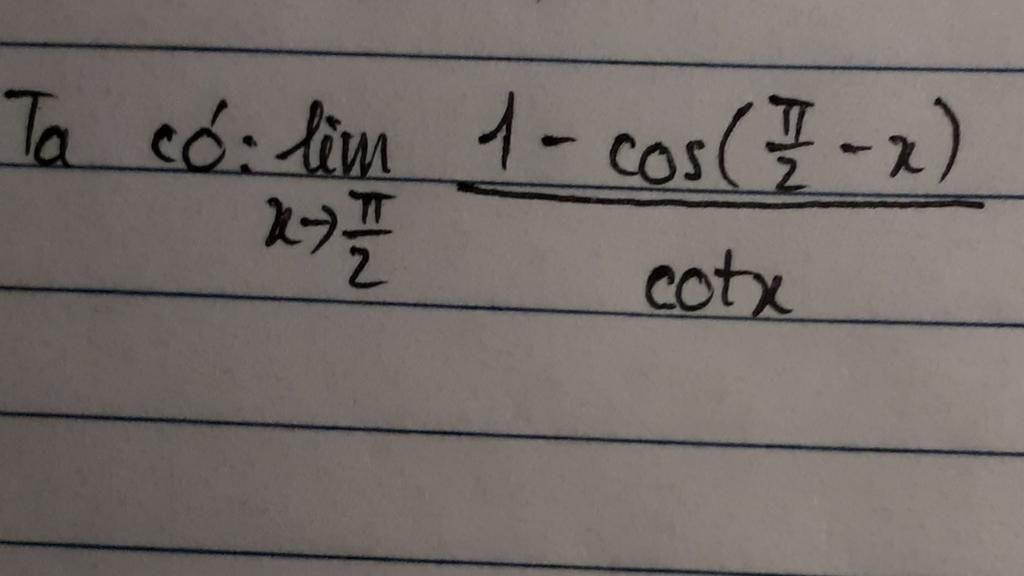 Ta có: lim_{x→π/2} \frac{1 - cos(\frac{π}{2} - x)}{cotx}